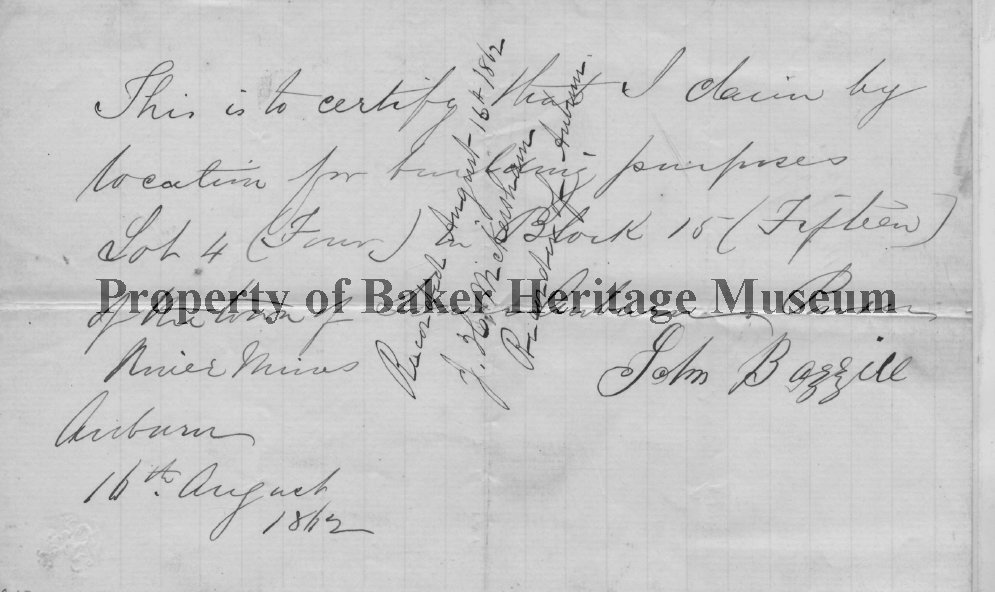 This is to certify that I claim by
location for building purposes
Lot 4 (Four) in Block 15 (Fifteen)
of the town of Auburn,
River Mines
John Bazzill
Auburn
16th August
1862
Recorded August 16th 1862
J. H. McKershan
Auburn.
Property of Baker Heritage Museum